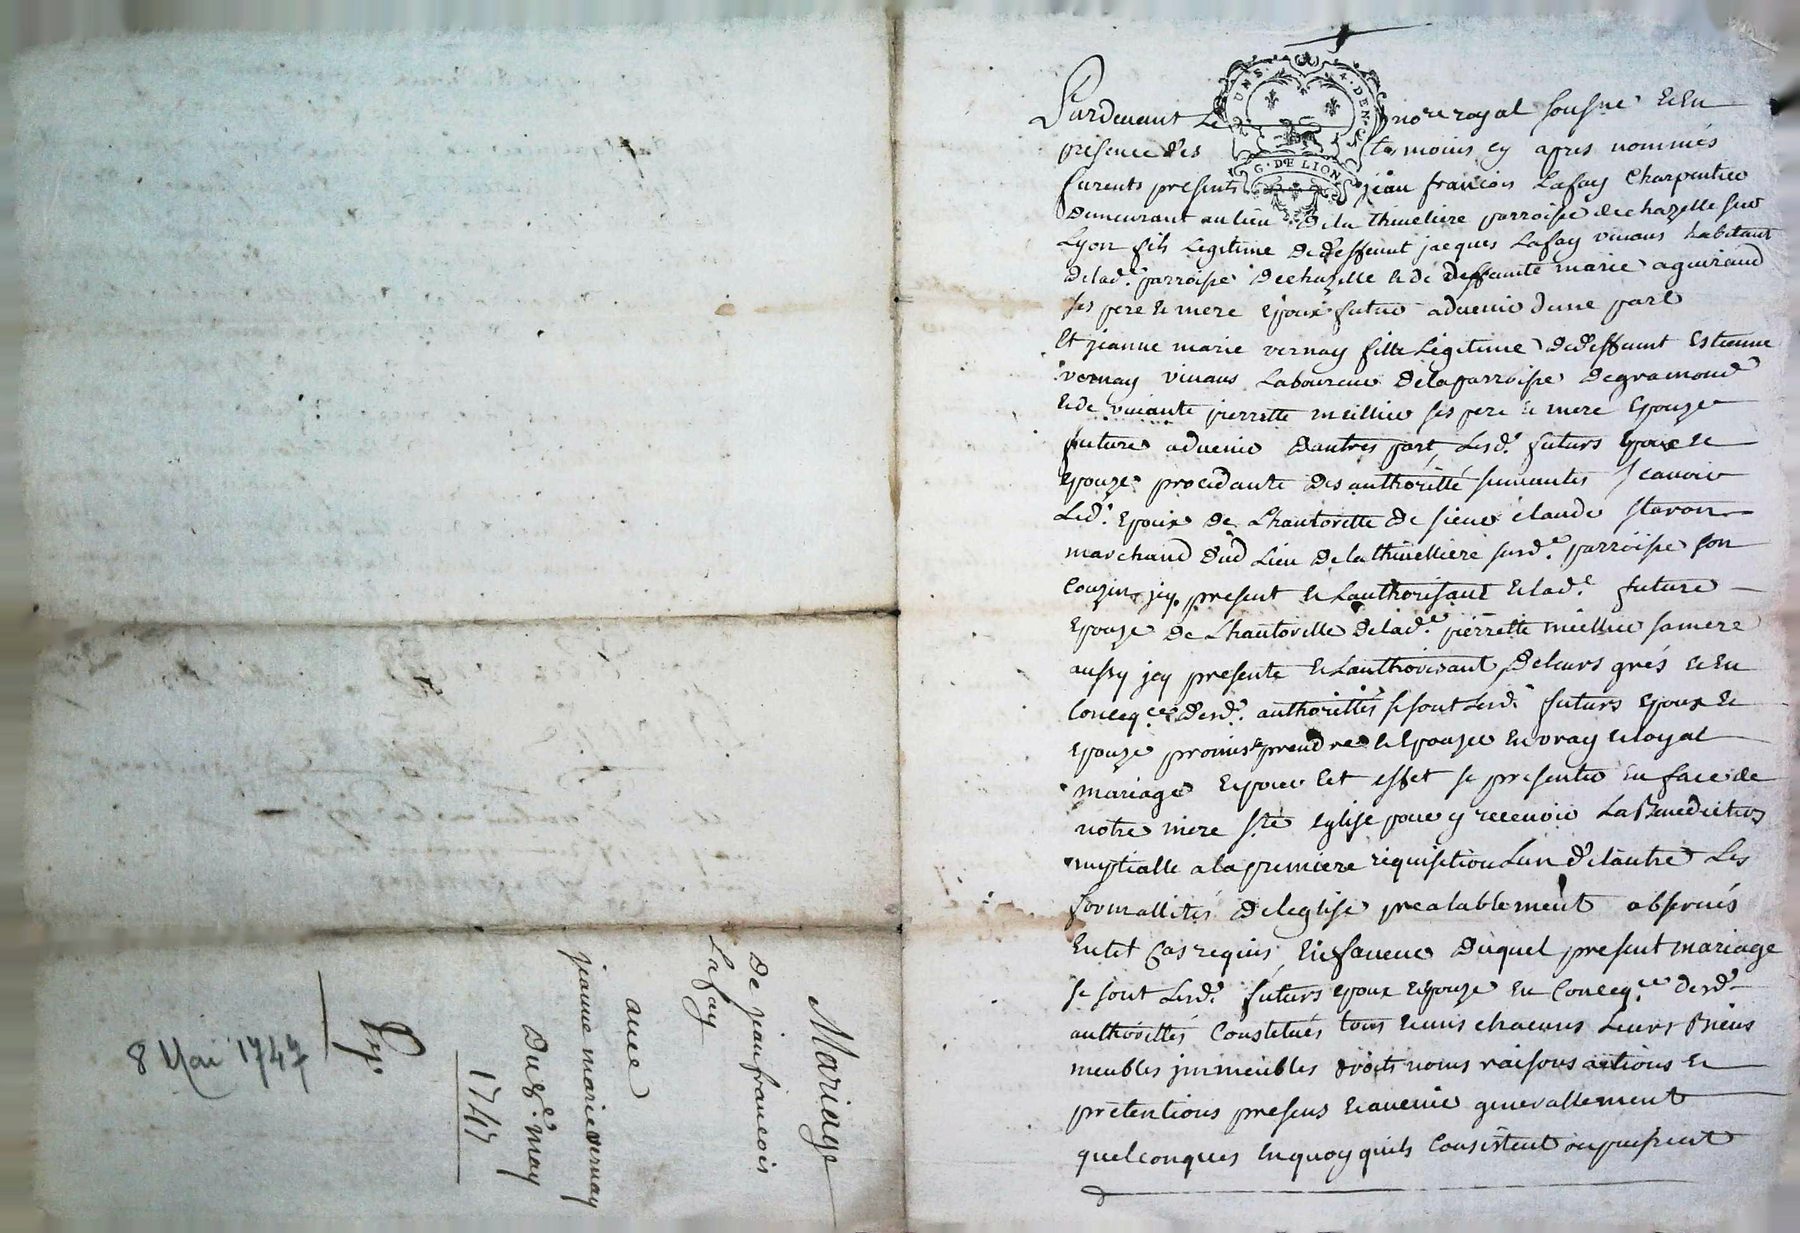 Mariage
De jean francois
Lafay
avec
jeanne marie vernay
Du 8e. may
1747
8 Mai 1747
UNS. 4. DEN.
G. DE LION
Pardevant Le nore royal sousne et En
presence des temoins cy apres nommés
furents presents jean francois Lafay Charpentier
Demeurant au lieu de la thiveliere parroisse de chazelle sur
Lyon fils Legitime De deffunt jacques Lafay vivans habitant
de lad. parroisse De chazelle et de deffunte marie aguiraud
ses pere et mere Epoux futur advenir dune part
Et jeanne marie vernay fille Legitime De deffunt Estienne
vernay vivans Laboureur De la parroisse De gramond
et de vivante pierrette meillier ses pere et mere Epouze
future advenir Dautres part, Lesd. futurs Epoux et
Epouze procedante Des authoritté suivantes Scavoir
Led. Epoux de Lhautoritte de sieur claude
marchand Dud Lieu De la thivelliere susd.e parroisse son
Couzin jcy present et Lauthorisant et lad.e future
Epouze de Lhautoritte De lad.e pierrette meillier sa mere
aussy jcy presente et Lauthorisant, De leurs grés et En
Conceq.ce Desd. authorittés se sont Lesd. futurs Epoux et
Epouze promis prendre et Epouzer En vray et loyal
mariage et pour cet effet se presenter En face de
notre mere Ste Eglise pour y recevoir La Benediction
nuptialle a la premiere requisition Lun De lautre Les
formallités De leglise prealablement observés
En tel Cas requis, En faveur Duquel present mariage
se sont Lesd. futurs Epoux et Epouze En Conceq.ce Desd.
authorittés Constitués tous et uns chacuns Leurs Biens
meubles jmmeubles droits noms raisons actions et
pretentions presens et avenir generallement
quelconques En quoy quils Consistent ou puissent